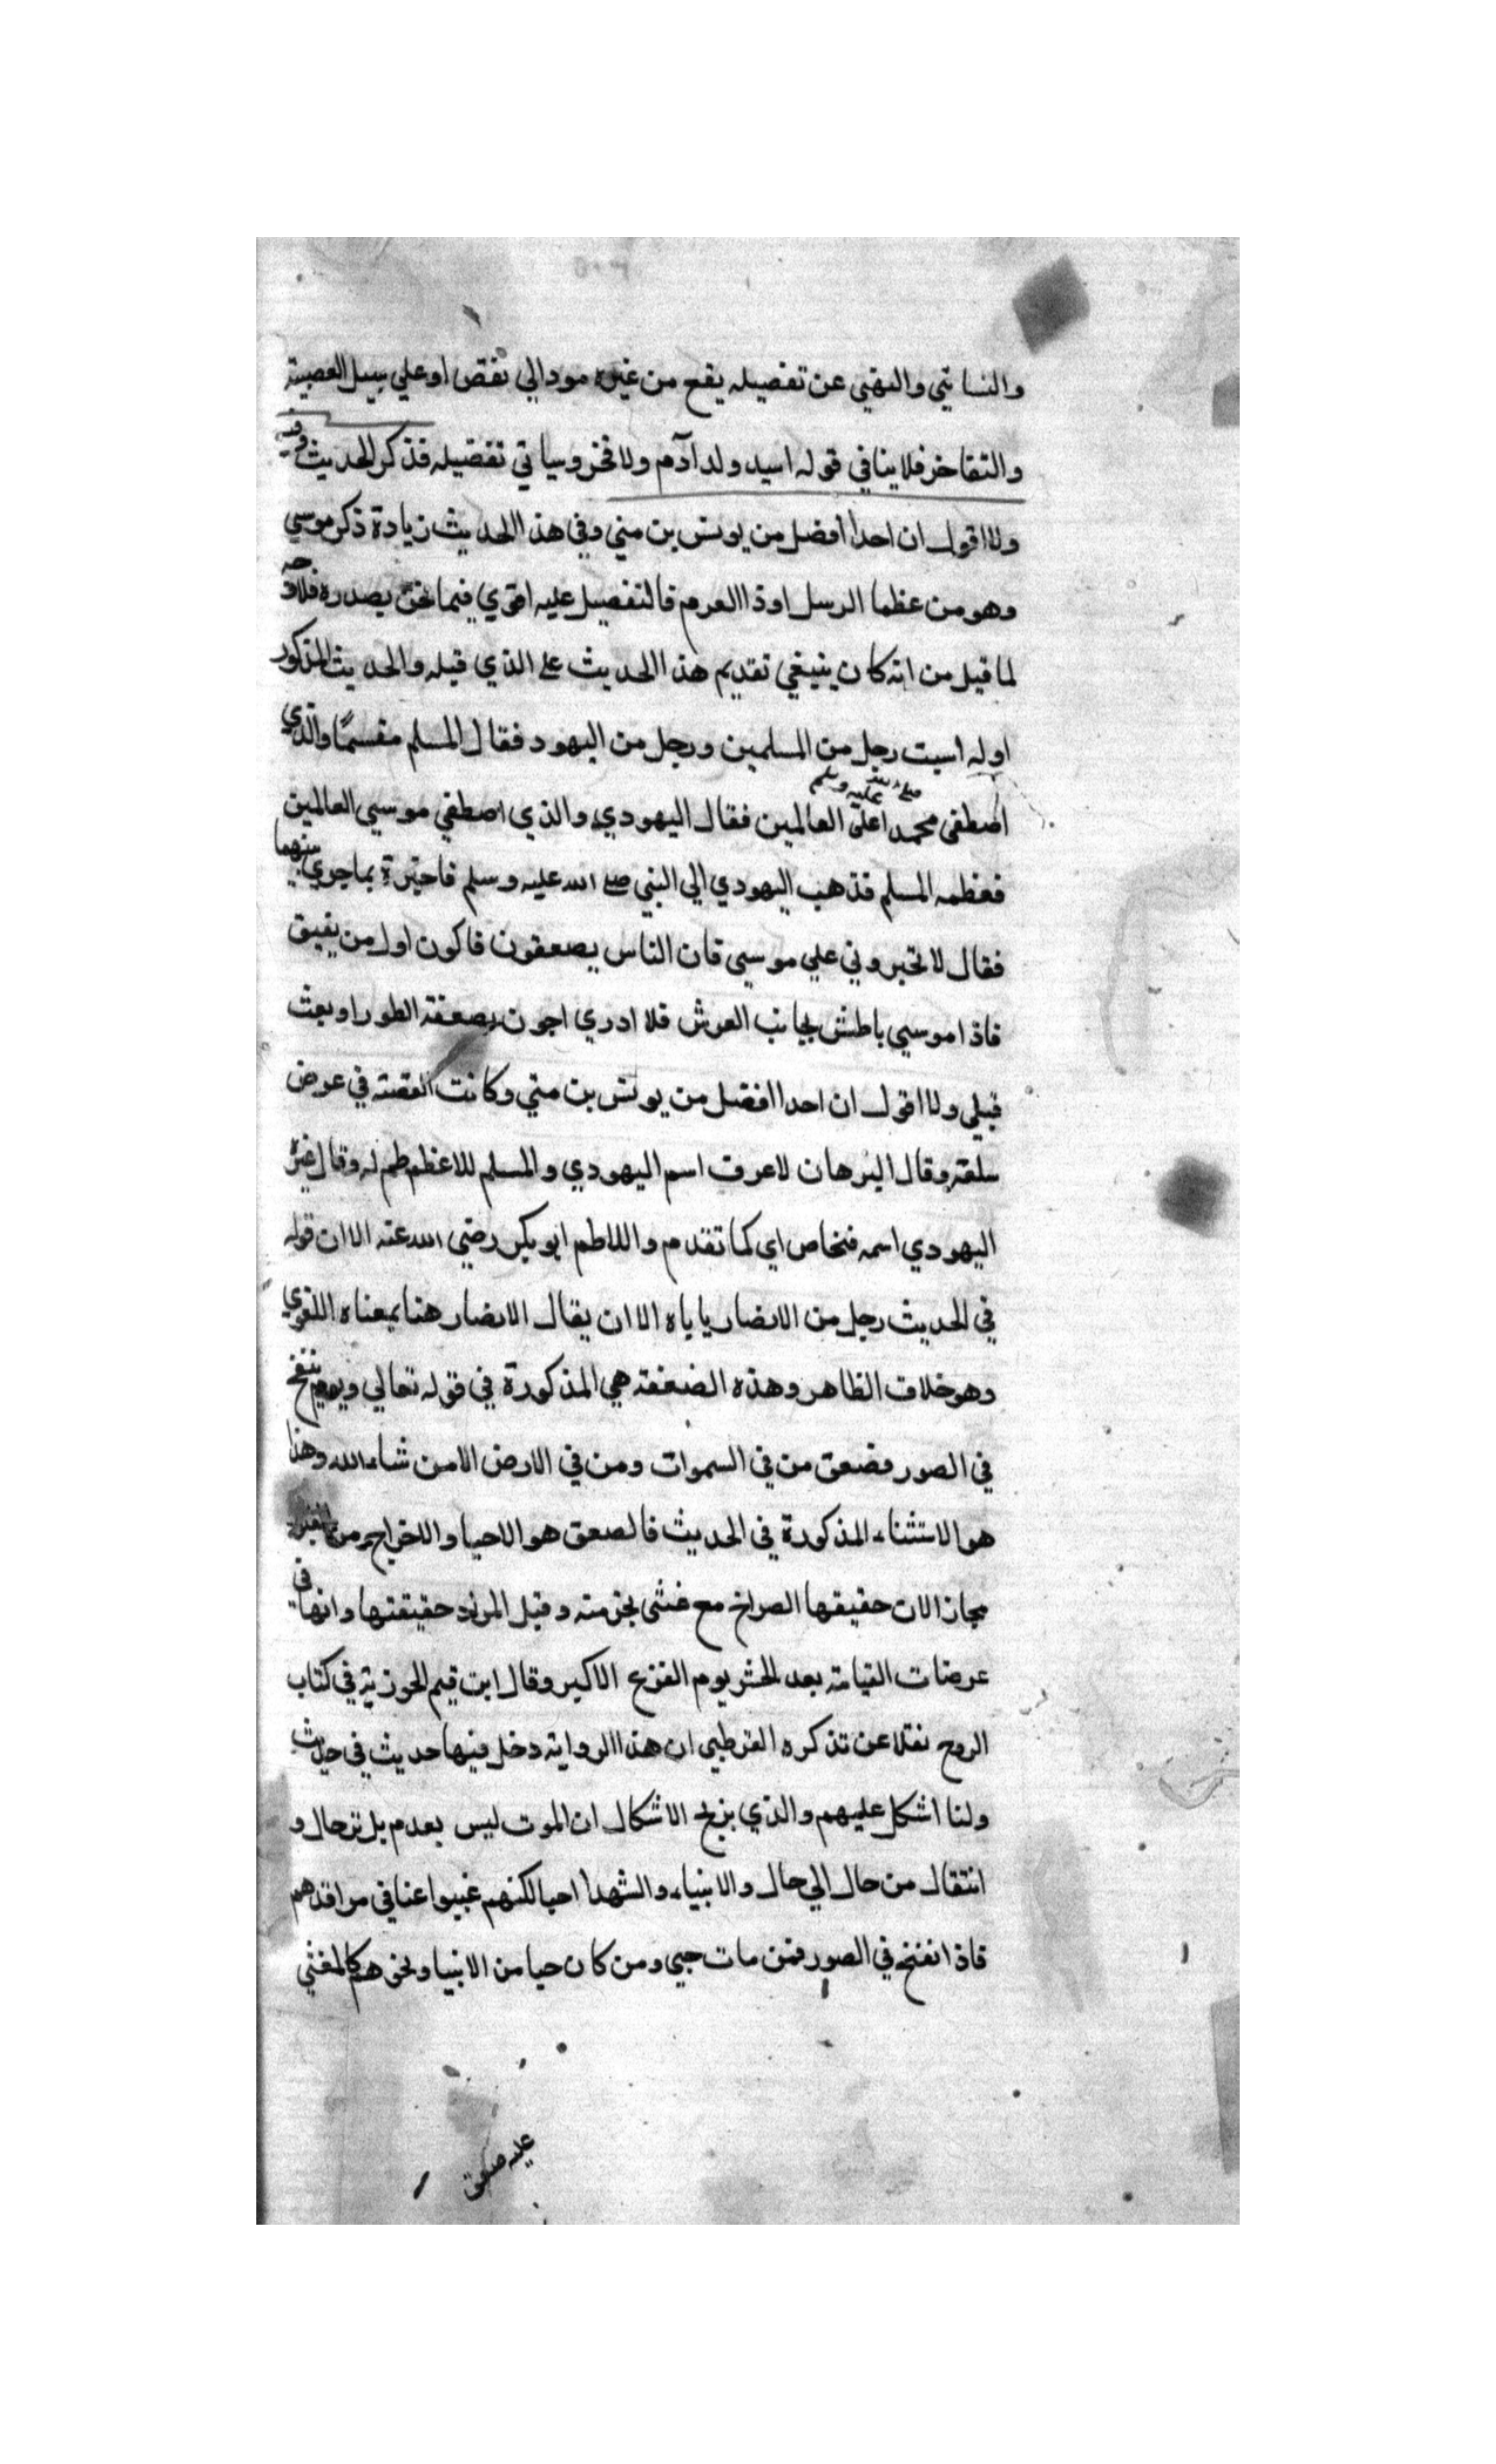 والنسائي والنهي عن تفضيله يقع من غيره مود الي نقص او علي سبيل العصبية
والتفاخر فلا ينافي قوله اسيد ولد آدم ولا فخر وسياتي تفضيله فذكر الحديث وفيه
ولا اقول ان احدا أفضل من يونس بن متي وفي هذا الحديث زيادة ذكر موسي
وهو من عظما الرسل اوذا العرم فالتفضيل عليه اقوي فيما نحن بصدره فلا وجه
لما قيل من انه كان ينبغي تقديم هذا الحديث علي الذي قبله والحديث المذكور
اوله اسبت رجل من المسلمين ورجل من اليهود فقال المسلم مقسمًا والذي
اصطفي محمدا صلى الله عليه وسلم علي العالمين فقال اليهودي والذي اصطفي موسي العالمين
فعظمه المسلم فذهب اليهودي الي النبي صلى الله عليه وسلم فاخبرة بما جري بينهما
فقال لا تخبروني علي موسي فان الناس يصعقون فاكون اول من يفيق
فاذا موسي باطش بجانب العرش فلا ادري اجون بصعقة الطور او بعث
قبلي ولا اقول ان احدا افضل من يونس بن متي وكانت القصة في عرض
سلعة وقال البرهان لا عرف اسم اليهودي والمسلم للاعظم طم له وقال غيره
اليهودي اسمه فنخاص اي كما تقدم واللاطم ابو بكر رضي الله عنه الا ان قوله
في الحديث رجل من الانصار ياباه الا ان يقال الانصار هنا بمعناه اللغوي
وهو خلاف الظاهر وهذه الصعقة هي المذكورة في قوله تعالي ويوم ينفخ
في الصور فصعق من في السموات ومن في الارض الا من شاء الله وهذا
هو الاستثناء المذكورة في الحديث فالصعق هو الاحيا والاخراج من القبر
مجاز الان حقيقها الصراخ مع غشي بجزمته وقيل المراد حقيقتها وانها في
عرضات القيامة بعد الحشر يوم الفزع الاكبر وقال ابن قيم الجوزية في كتاب
الروح نقلا عن تذكره القرطبي ان هذا الرواية دخل فيها حديث في حديث
ولنا اشكل عليهم والذي يزيح الاشكال ان الموت ليس بعدم بل ترحال و
انتقال من حال الي حال والانبياء والشهدا احيا لكنهم غيبوا عنا في مراقدهم
فاذا انفخ في الصور فمن مات حيي ومن كان حيا من الانبيا ونحوهم كالمغشي
عليه صعق